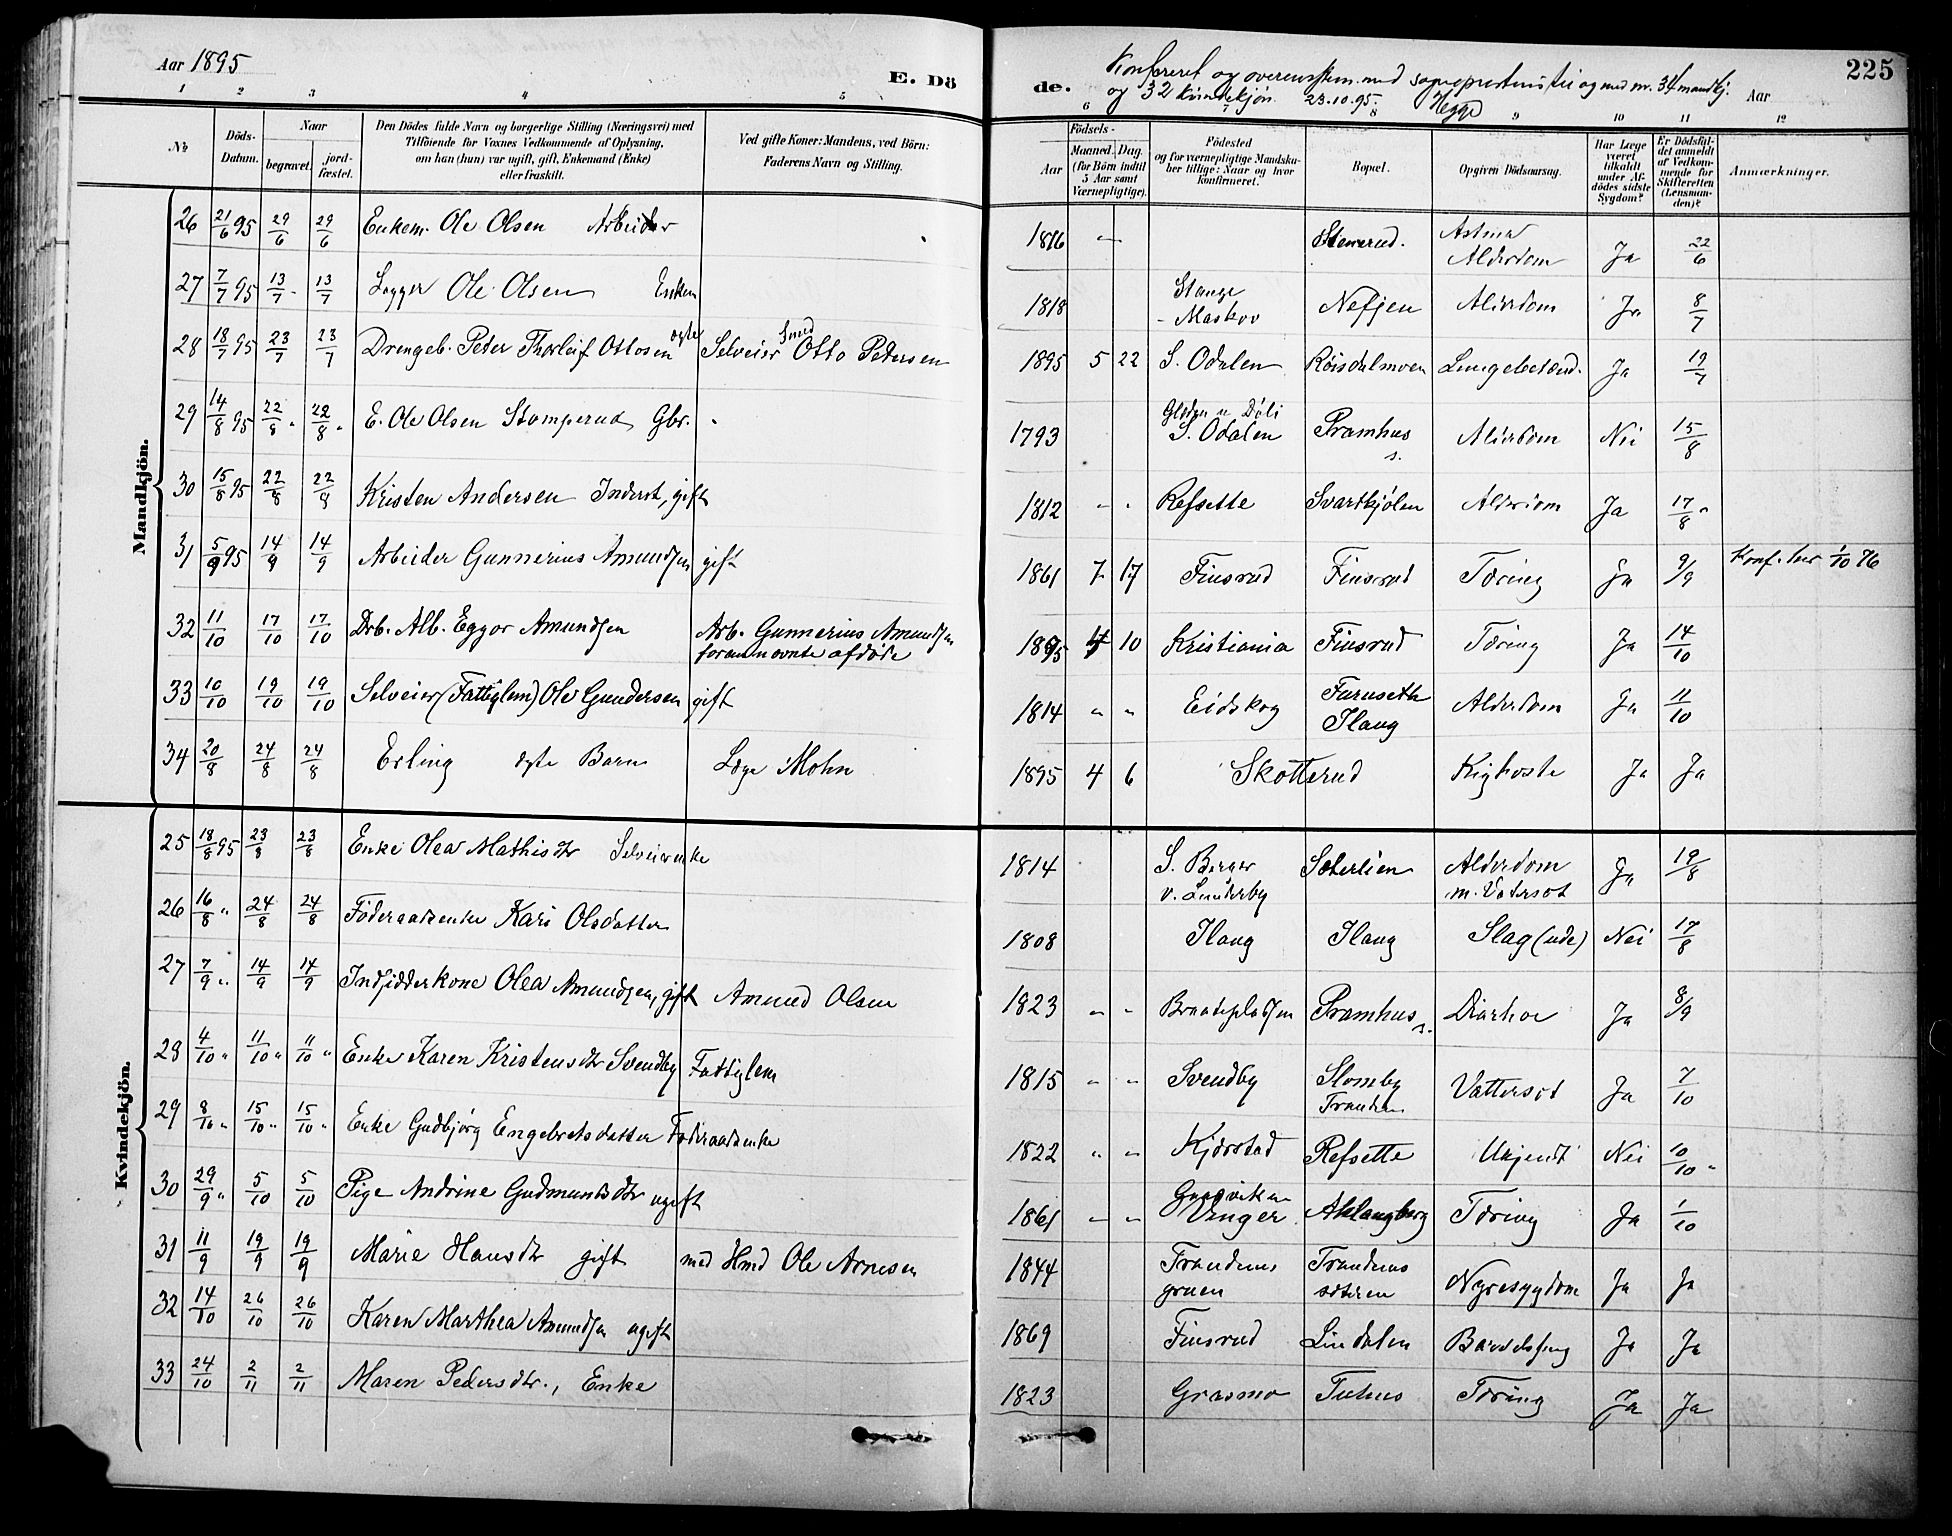 Aar 1895
E. Døde.
Konfereret og overensstem. med sogneprestens til og med nr. 34 mandkj.
og 32 kvindekjøn 23.10.95.
Aar
225
1 2 3 4 5 6 7 8 9 10 11 12
№
Döds-Datum.
Naar
begravet. jord-fæstet.
Den Dödes fulde Navn og borgerlige Stilling (Næringsvei) med
Tilföiende for Voxnes Vedkommende af Oplysning,
om han (hun) var ugift, gift, Enkemand (Enke)
eller fraskilt.
Ved gifte Koner: Mandens, ved Börn:
Faderens Navn og Stilling.
Födsels-
Aar Maaned. Dag.
(for Börn indtil
5 Aar samt
Værnepligtige).
Födested
og for værnepligtige Mandska-
ber tillige: Naar og hvor
konfirmeret.
Bopæl.
Opgiven Dödsaarsag.
Har Læge
været
tilkaldt
under Af-
dödes sidste
Sygdom?
Er Dödsfal-
det anmeldt
af Vedkom-
mende for
Skifteretten
(Lensman-
den)?
Anmærkninger.
Mandkjön.
26 21/6 95 29/6 29/6 Enkem. Ole Olsen Arbeider 1816 " Stenerud. Astma Alderdom Ja 22/6
27 7/7 95 13/7 13/7 Lægger Ole Olsen Enkem 1818 Stange - Maskov Nefjen Alderdom Ja 8/7
28 18/7 95 23/7 23/7 Drengeb. Peter Thorleif Ottosen ægte Selveier Smed Otto Pedersen 1895 5 22 S. Odalen Röisdalmoen Lungebetænd. Ja 19/7
29 14/8 95 22/8 22/8 E. Ole Olsen Stomperud Gbr. 1793 S. Odalen Pramhus s. Alderdom Nei 15/8
30 15/8 95 22/8 22/8 Kristen Andersen Inderst, gift 1812 " " Refsette Svartkjølen Alderdom Ja 17/8
31 5/9 95 14/9 14/9 Arbeider Gunnerius Amundsen gift 1861 7 17 Finsrud Finsrud Tæring Ja 9/9 Konf. her 1/10 76
32 11/10 17/10 17/10 Drb. Alb. Eggor Amundsen Arb. Gunnerius Amundsen forannævnte afdöde 1895 4 10 Kristiania Finsrud Tæring Ja 14/10
33 10/10 19/10 19/10 Selveier (Fattiglem) Ole Gundersen gift 1814 " " Eidskog Furuseth Ilang Alderdom Ja 11/10
34 20/8 24/8 24/8 Erling ægte Barn Læge Mohn 1895 4 6 Skotterud Kighoste Ja Ja
Kvindekjön.
25 18/8 95 23/8 23/8 Enke Olea Mathisdtr Selveierenke 1814 S. Berger v. Linderby Sæterlien Alderdom m. Vatersot Ja 19/8
26 16/8 " 24/8 24/8 Föderaadsenke Kari Olsdatter 1808 Ilang Ilang Slag (ude) Nei 17/8
27 7/9 " 14/9 14/9 Indsidderkone Olea Amundsen, gift Amund Olsen 1823 " " Braateplassen Pramhus s. Diarhoe Ja 8/9
28 4/10 " 11/10 " 11/10 " Enke Karen Kristensdtr Svendby Fattiglem 1815 " " Svendby Slomby Tranden Vattersot Ja 7/10
29 8/10 " 15/10 " 15/10 " Enke Gudbjörg Engebretsdatter Föderaadsenke 1822 " " Kjörstad Refsette Ukjendt Nei 10/10 "
30 29/9 " 5/10 5/10 Pige Andrine Gudmundsdtr ugift 1861 " " Vinger Aklangberg Tæring Ja 1/10
31 11/9 19/9 19/9 Marie Hansdtr gift med Hmd Ole Arnesen 1844 Trandems gruen Trandems sæteren Nyresygdom Ja Ja
32 14/10 26/10 26/10 Karen Marthea Amundsen ugift 1869 Finsrud Lindalen Barselseng Ja Ja
33 24/10 2/11 2/11 Maren Pedersdtr., Enke 1823 Grasmo Tuhus Tæring Ja Ja